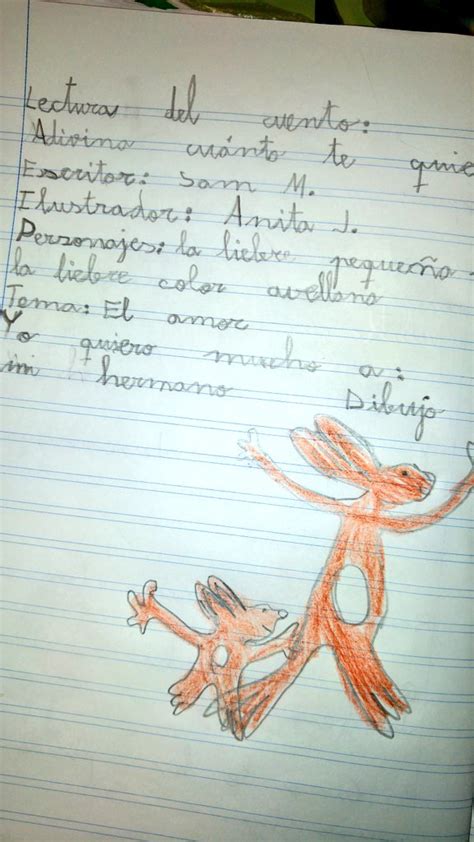 Lectura del cuento:
Adivina cuánto te quie
Escritor: Sam M.
Ilustrador: Anita J.
Personajes: la liebre pequeña
la liebre color avellana
Tema: El amor
Yo quiero mucho a:
mi hermano Dibujo